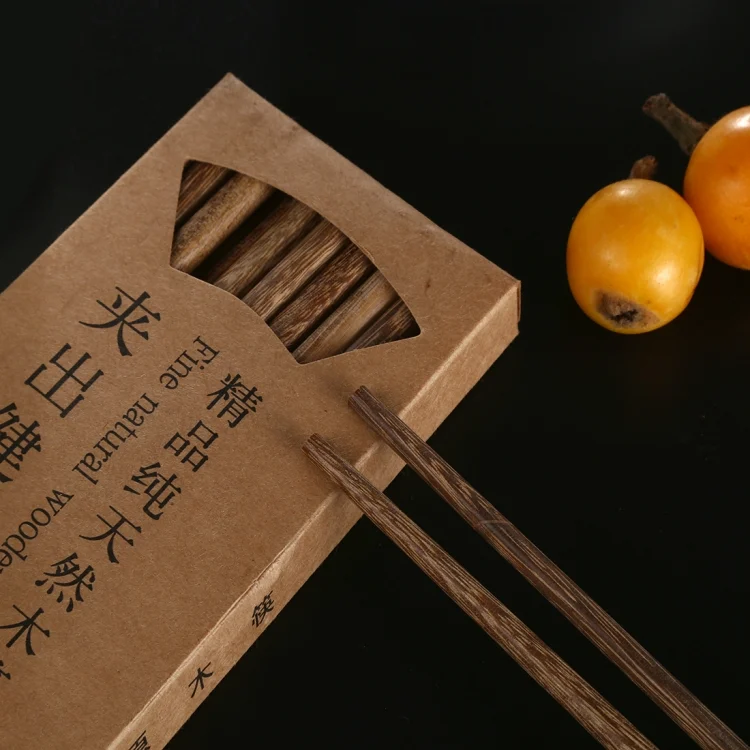 夹出健
Fine natural wooden
精品纯天然木
筷木